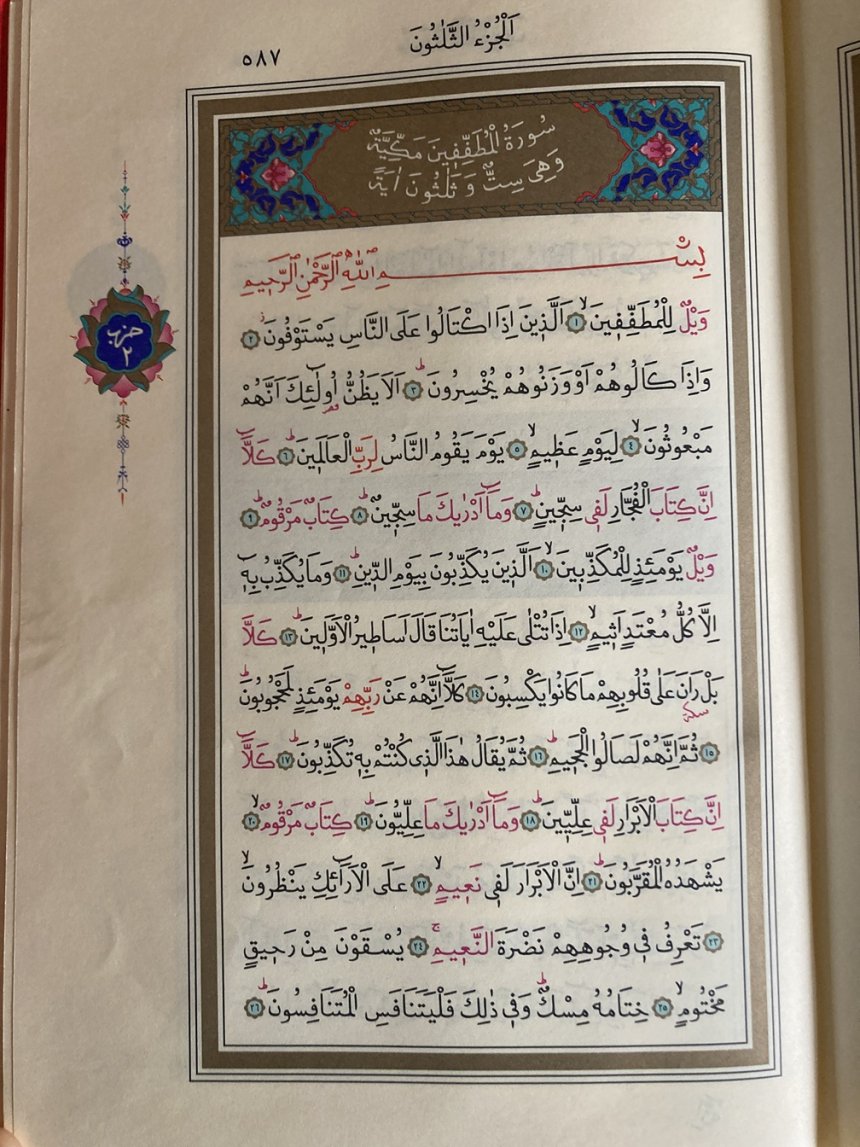 اَلْجُزْءُ الثَّلٰثُونَ
٥٨٧
سُورَةُ الْمُطَفِّفِينَ مَكِّيَّةٌ
وَهِىَ سِتٌّ وَثَلٰثُونَ اٰيَةً
حزب
٢
بِسْمِ اللّٰهِ الرَّحْمٰنِ الرَّحِيمِ
وَيْلٌ لِلْمُطَفِّفِينَۙ ﴿١﴾ اَلَّذِينَ اِذَا اكْتَالُوا عَلَى النَّاسِ يَسْتَوْفُونَۘ ﴿٢﴾
وَاِذَا كَالُوهُمْ اَوْ وَزَنُوهُمْ يُخْسِرُونَۜ ﴿٣﴾ اَلَا يَظُنُّ اُو۬لٰٓئِكَ اَنَّهُمْ
مَبْعُوثُونَۙ ﴿٤﴾ لِيَوْمٍ عَظِيمٍۙ ﴿٥﴾ يَوْمَ يَقُومُ النَّاسُ لِرَبِّ الْعَالَمِينَۜ ﴿٦﴾ كَلَّٓا
اِنَّ كِتَابَ الْفُجَّارِ لَفِى سِجِّينٍۜ ﴿٧﴾ وَمَٓا اَدْرٰيكَ مَا سِجِّينٌۜ ﴿٨﴾ كِتَابٌ مَرْقُومٌۜ ﴿٩﴾
وَيْلٌ يَوْمَئِذٍ لِلْمُكَذِّبِينَۙ ﴿١٠﴾ اَلَّذِينَ يُكَذِّبُونَ بِيَوْمِ الدِّينِۜ ﴿١١﴾ وَمَا يُكَذِّبُ بِهِٓ
اِلَّا كُلُّ مُعْتَدٍ اَثِيمٍۙ ﴿١٢﴾ اِذَا تُتْلٰى عَلَيْهِ اٰيَاتُنَا قَالَ اَسَاطِيرُ الْاَوَّلِينَۜ ﴿١٣﴾ كَلَّا
بَلْ رَانَ عَلٰى قُلُوبِهِمْ مَا كَانُوا يَكْسِبُونَ ﴿١٤﴾ كَلَّٓا اِنَّهُمْ عَنْ رَبِّهِمْ يَوْمَئِذٍ لَمَحْجُوبُونَۜ
سكته
﴿١٥﴾ ثُمَّ اِنَّهُمْ لَصَالُوا الْجَحِيمِۜ ﴿١٦﴾ ثُمَّ يُقَالُ هٰذَا الَّذِى كُنْتُمْ بِهِ تُكَذِّبُونَۜ ﴿١٧﴾ كَلَّٓا
اِنَّ كِتَابَ الْاَبْرَارِ لَفِى عِلِّيِّينَۜ ﴿١٨﴾ وَمَٓا اَدْرٰيكَ مَا عِلِّيُّونَۜ ﴿١٩﴾ كِتَابٌ مَرْقُومٌۙ ﴿٢٠﴾
يَشْهَدُهُ الْمُقَرَّبُونَۜ ﴿٢١﴾ اِنَّ الْاَبْرَارَ لَفِى نَعِيمٍۙ ﴿٢٢﴾ عَلَى الْاَرَٓائِكِ يَنْظُرُونَۙ
﴿٢٣﴾ تَعْرِفُ فِى وُجُوهِهِمْ نَضْرَةَ النَّعِيمِۚ ﴿٢٤﴾ يُسْقَوْنَ مِنْ رَحِيقٍ
مَخْتُومٍۙ ﴿٢٥﴾ خِتَامُهُ مِسْكٌۜ وَفِى ذٰلِكَ فَلْيَتَنَافَسِ الْمُتَنَافِسُونَۜ ﴿٢٦﴾